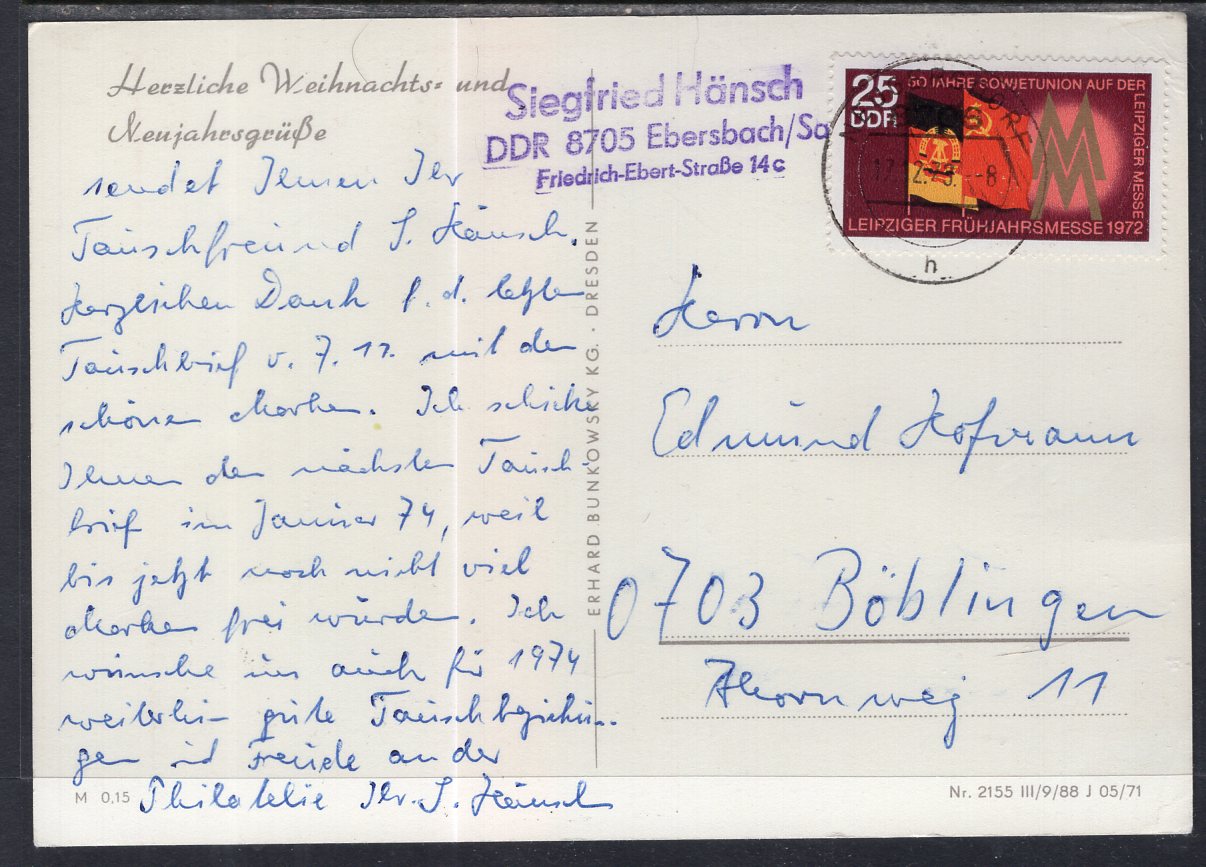 Herzliche Weihnachts- und
Neujahrsgrüße
sendet Ihnen Ihr
Tauschfreund S. Hänsch.
Herzlichen Dank f. d. letzten
Tauschbrief v. 7.11. mit den
schönen Marken. Ich schicke
Ihnen den nächsten Tausch-
brief im Januar 74, weil
bis jetzt noch nicht viel
Marken frei wurden. Ich
wünsche uns auch für 1974
weiterhin gute Tauschbeziehun-
gen und Freude an der
Philatelie Ihr S. Hänsch
M 0,15
Siegfried Hänsch
DDR 8705 Ebersbach/Sa
Friedrich-Ebert-Straße 14c
ERHARD BUNKOWSKY KG. · DRESDEN
25
DDR
50 JAHRE SOWJETUNION AUF DER LEIPZIGER MESSE
LEIPZIGER FRÜHJAHRSMESSE 1972
12.73.-8
h
Herrn
Edmund Hofmann
0703 Böblingen
Ahornweg 11
Nr. 2155 III/9/88 J 05/71